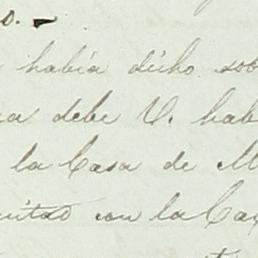 o.
había dicho sob
a debe V. hab
la Casa de M
con la Ca